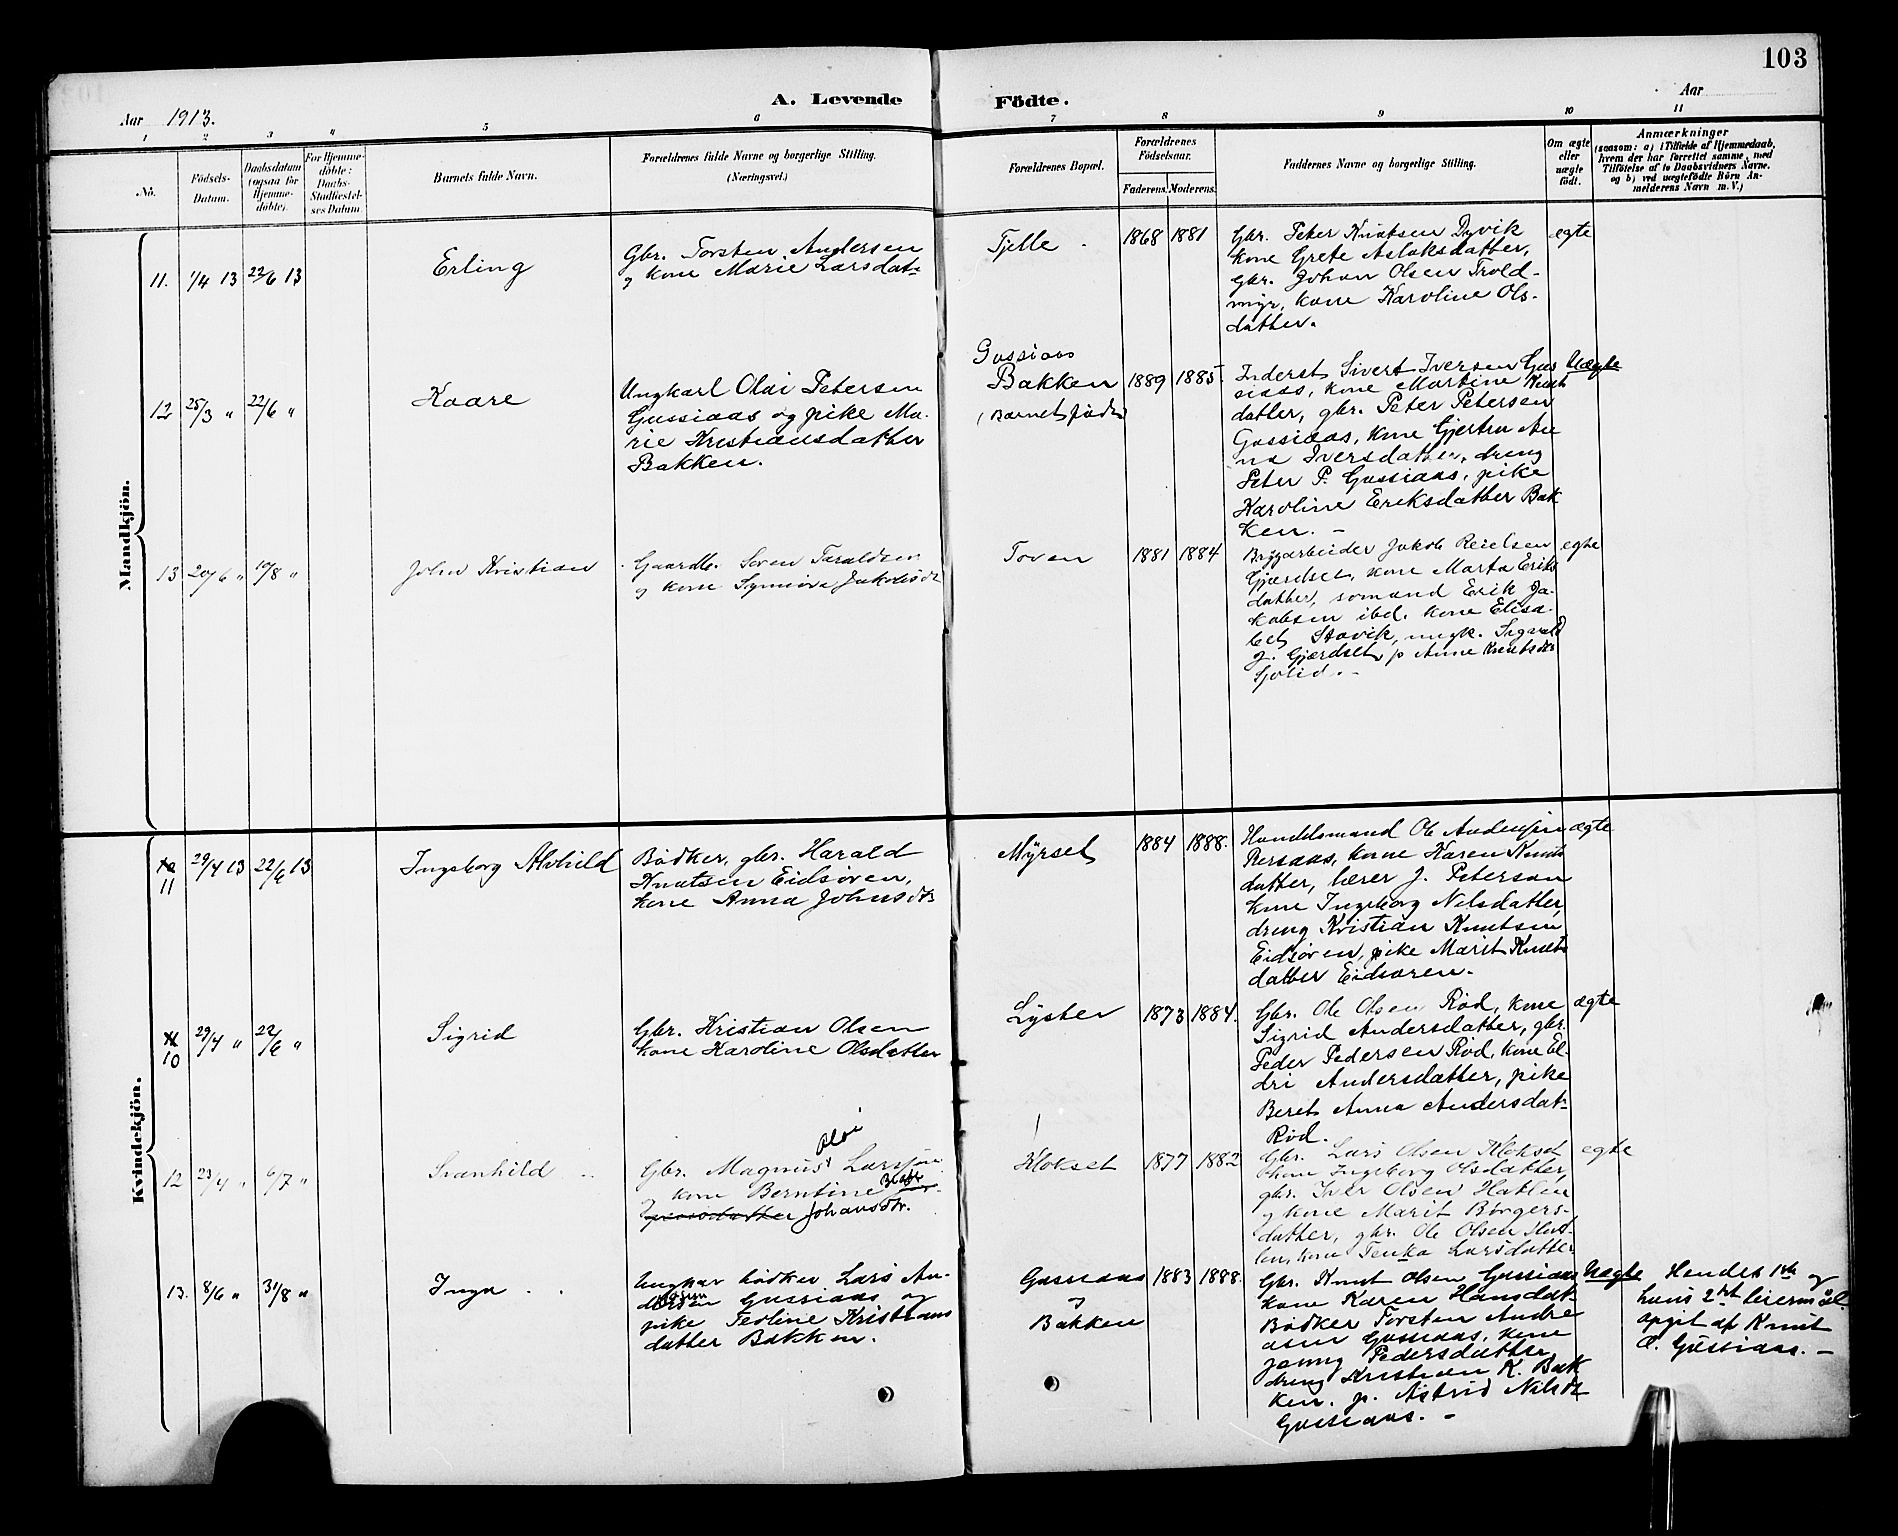 103
A. Levende Födte.
Aar 1913.
Aar
1 2 3 4 5 6 7 8 9 10 11
No.
Födsels-
Datum.
Daabsdatum
(ogsaa for
Hjemme-
döbte).
For Hjemme-
döbte:
Daabs-
Stadfæstel-
ses Datum.
Barnets fulde Navn.
Forældrenes fulde Navne og borgerlige Stilling.
(Næringsvei.)
Forældrenes Bopæl.
Forældrenes
Födselsaar.
Faderens. Moderens.
Faddernes Navne og borgerlige Stilling.
Om ægte
eller
uægte
födt.
Anmærkninger
(saasom: a) i Tilfælde af Hjemmedaab,
hvem der har forrettet samme, med
Tilföielse af to Daabsvidners Navne,
og b) ved uægtefödte Börn An-
melderens Navn m. V.)
Mandkjön.
11. 1/4 13 22/6 13
Erling
Gbr. Torsten Andersen
og kone Marie Larsdat-
Tjelle
1868 1881
Gbr. Peter Knutsen Dyvik
kone Grete Aslaksdatter,
gbr. Johan Olsen Trold-
myr, kone Karoline Ols-
datter.
egte
12 25/3 " 22/6 "
Kaare
Ungkarl Olai Petersen
Gussiaas og pike Ma-
rie Kristiansdatter
Bakken.
Gussiaas
Bakken
(Barnets føde
1889 1885.
Inderst Sivert Iversen Gus
siaas, kone Martine Knuts
datter, gbr. Peter Petersen
Gussiaas, kone Gjertru An
na Iversdatter, dreng
Peter P. Gussiaas, pike
Karoline Eriksdatter Bak
ken. -
Uægte
13 20/6 " 10/8 "
John Kristian
Gaardbr. Søren Taraldsen
og kone Synnøve Jakobsdt
Toven
1881 1884
Bryggarbeider Jakob Reielsen
Gjærdset, kone Marta Eriks
datter, sømand Erik Ja-
kobsen ibd. kone Elisa-
bet Stavik, ungk. Sigvald
J. Gjærdset, p Anne Knutsdtr
Sjølid. -
egte
Kvindekjön.
11 29/4 13 22/6 13
Ingeborg Alvhild
Bødker, gbr. Harald
Knutsen Eidsøren,
kone Anna Johnsdtr
Myrset
1884 1888.
Handelsmand Ole Andersen
Persaas, kone Karen Knuts
datter, lærer J. Peterson
kone Ingeborg Nelsdatter,
dreng Kristian Knutsen
Eidsøren, pike Marit Knuts
datter Eidsøren.
ægte
10 29/4 " 22/6 "
Sigrid
Gbr. Kristian Olsen
kone Karoline Olsdatter
Lyster
1873 1884.
Gbr. Ole Olsen Rød, kone
Sigrid Andersdatter, gbr.
Peder Pedersen Rød, kone El-
dri Andersdatter, pike
Berit Anna Andersdat-
Rød.
ægte
12 23/4 " 6/7 "
Svanhild
Olai
Gbr. Magnus Larsen
og kone Berntine Beate
Johansdtr.
Klokset
1877 1882
Gbr. Lars Olsen Klokset
kone Ingeborg Olsdatter,
gbr. Iver Olsen Hatlen
og kone Marit Børgers-
datter, gbr. Ole Olsen Hat-
len, kone Tenka Larsdatter
egte
13. 8/6 " 31/8 "
Inga
Ungkar bødker Lars An-
dersen Gussiaas og
pike Teoline Kristians
datter Bakken.
Gussiaas
og
Bakken
1883 1888.
Gbr. Knut Olsen Gussiaas
kone Karen Hansdat-
Bødker Torsten Andre
asen Gussiaas, kone
Jenny Pedersdatter
dreng Kristian K. Bak
ken. p. Astrid Nilsdt
Gussiaas. -
Uægte
Hendes 1ste og
hans 2det leiermål.
opgit af Knut
O. Gussiaas. -